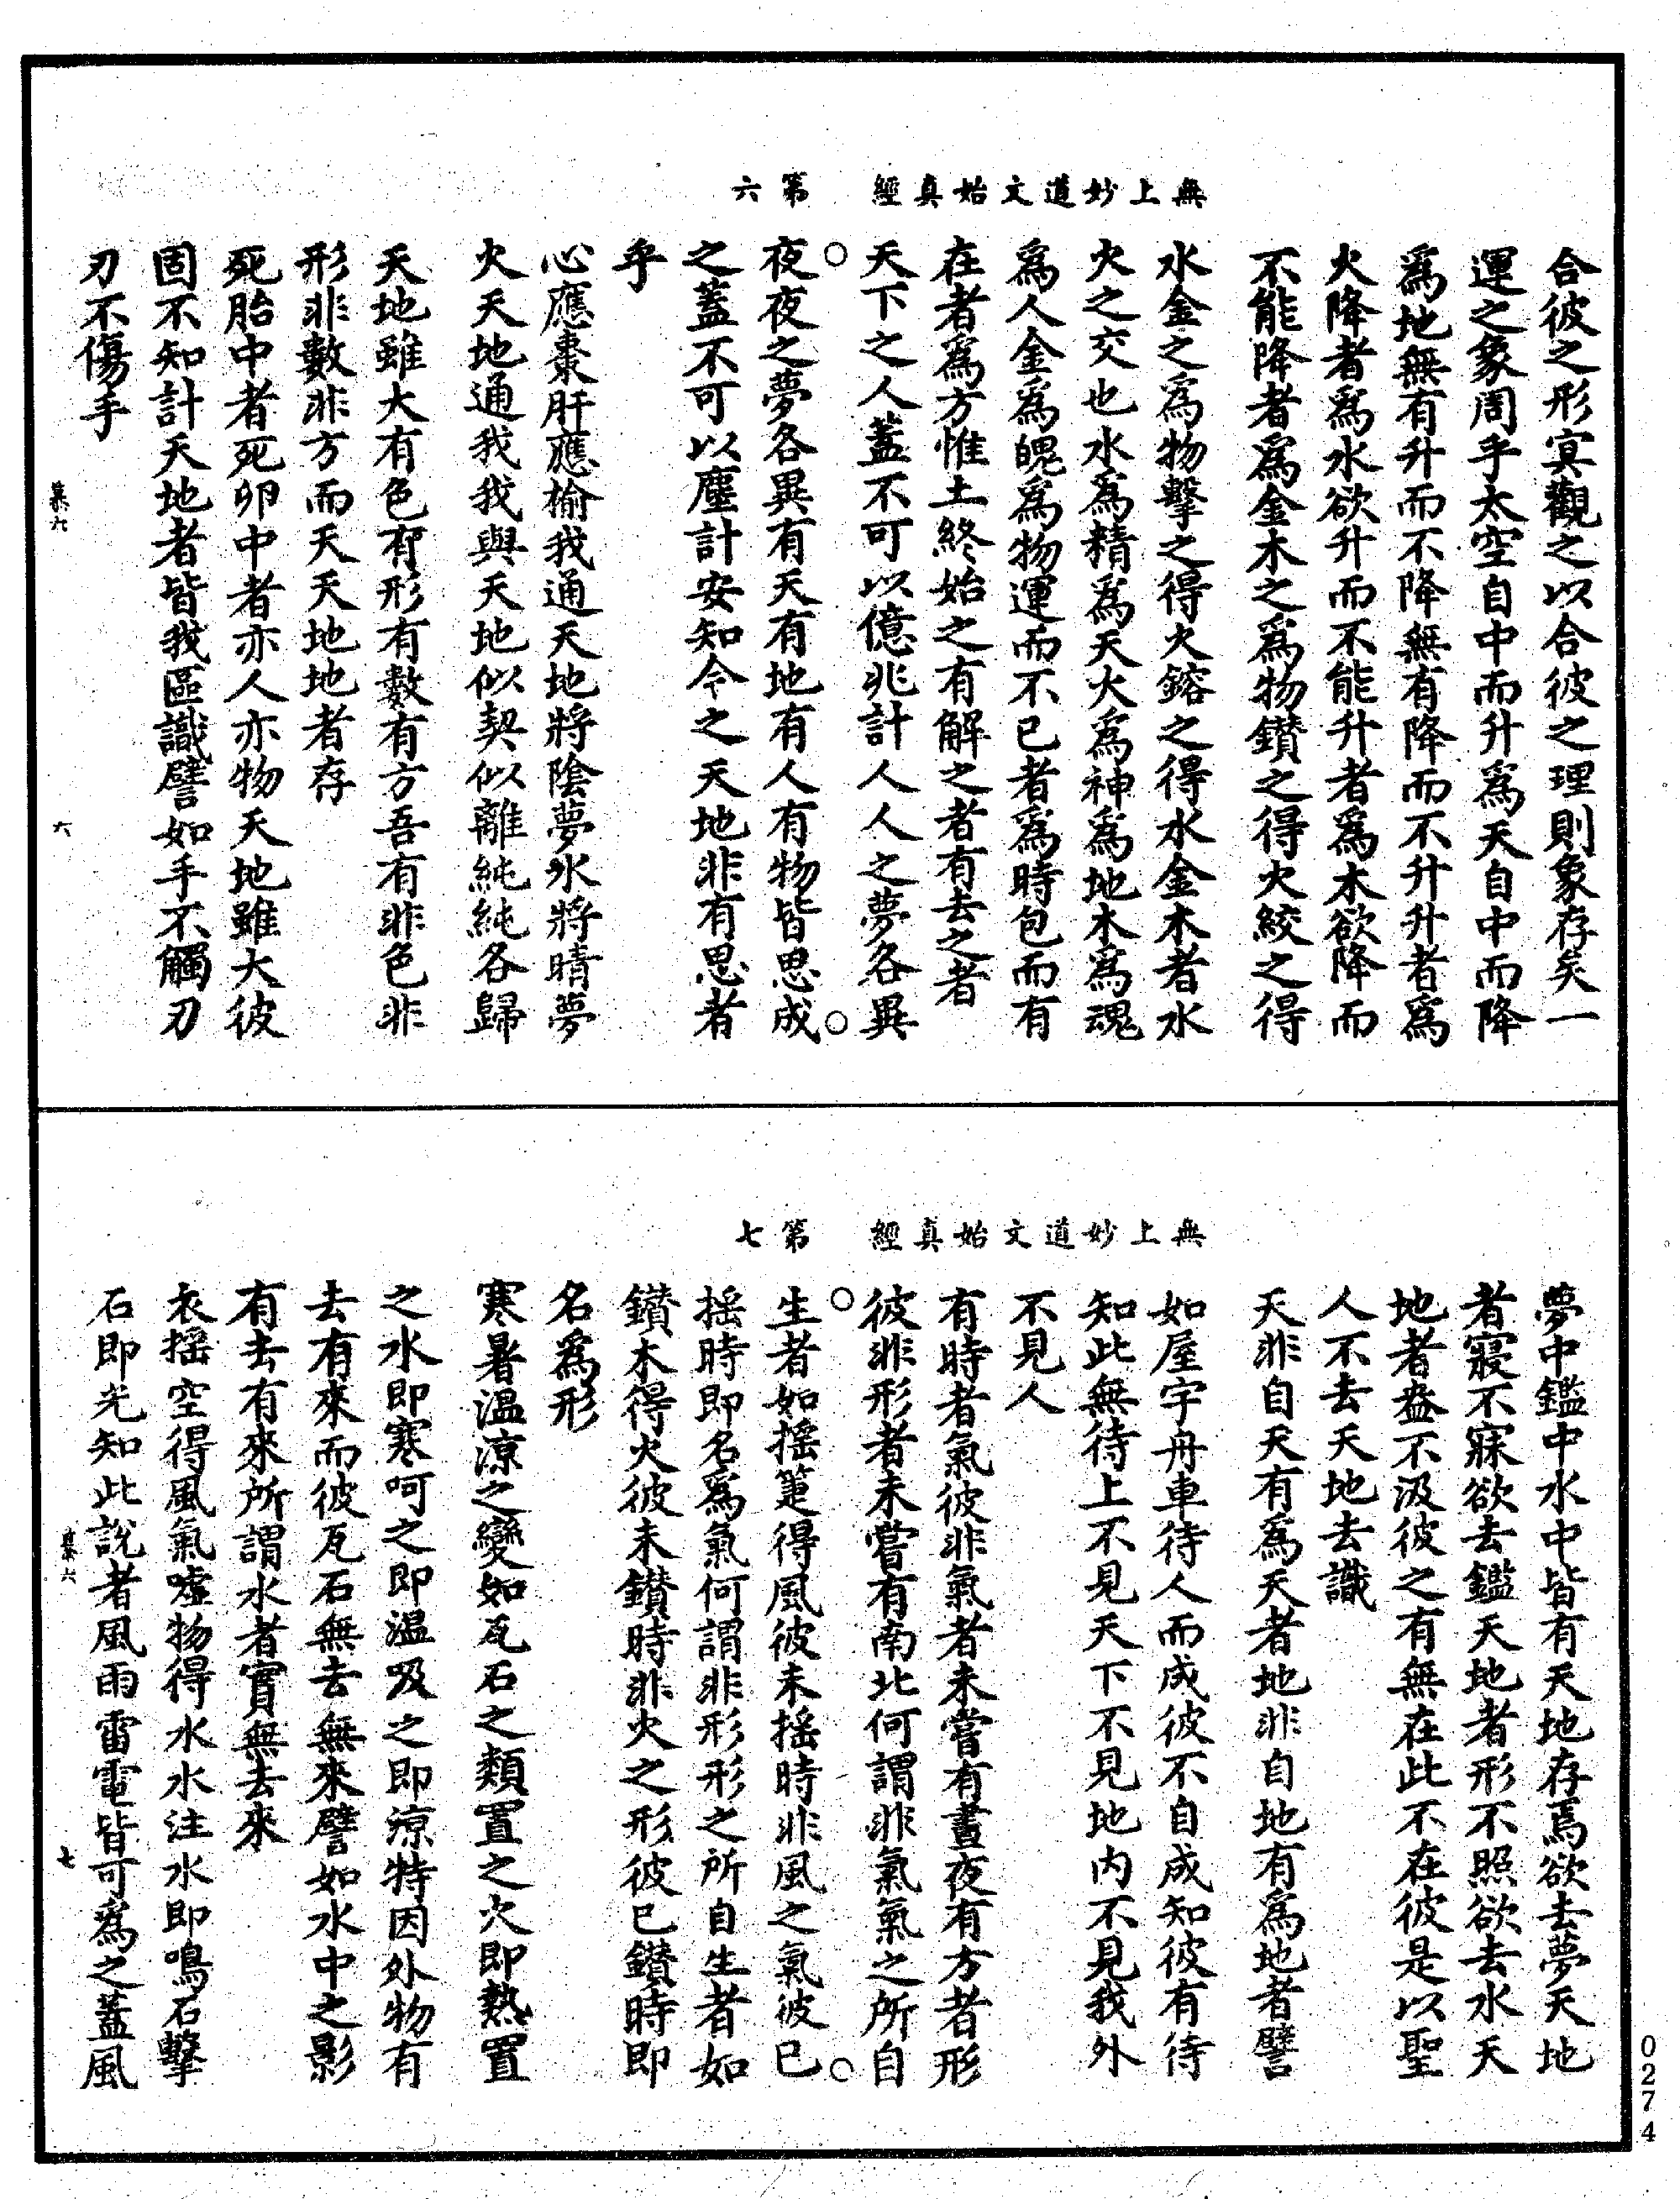 無上妙道文始真經　第六
合彼之形㝠觀之以合彼之理則象存矣一
運之象周乎太空自中而升爲天自中而降
爲地無有升而不降無有降而不升升者爲
火降者爲水欲升而不能升者爲木欲降而
不能降者爲金木之爲物鑽之得火絞之得
水金之爲物擊之得火鎔之得水金木者水
火之交也水爲精爲天火爲神爲地木爲魂
爲人金爲魄爲物運而不已者爲時包而有
在者爲方惟土終始之有解之者有去之者
天下之人蓋不可以億兆計人人之夢各異
夜夜之夢各異有天有地有人有物皆思成
之蓋不可以塵計安知今之天地非有思者
乎
心應棗肝應榆我通天地將陰夢水將晴夢
火天地通我我與天地似契似離純純各歸
天地雖大有色有形有數有方吾有非色非
形非數非方而天天地地者存
死胎中者死卵中者亦人亦物天地雖大彼
固不知計天地者皆我區識譬如手不觸刃
刃不傷手
慕六
六
無上妙道文始真經　第七
夢中鑑中水中皆有天地存焉欲去夢天地
者寢不寐欲去鑑天地者形不照欲去水天
地者盎不汲彼之有無在此不在彼是以聖
人不去天地去識
天非自天有爲天者地非自地有爲地者譬
如屋宇舟車待人而成彼不自成知彼有待
知此無待上不見天下不見地内不見我外
不見人
有時者氣彼非氣者未嘗有晝夜有方者形
彼非形者未嘗有南北何謂非氣氣之所自
生者如摇箑得風彼未摇時非風之氣彼已
摇時即名爲氣何謂非形形之所自生者如
鑽木得火彼未鑽時非火之形彼已鑽時即
名爲形
寒暑温凉之變如瓦石之類置之火即熱置
之水即寒呵之即温吸之即凉特因外物有
去有來而彼瓦石無去無來譬如水中之影
有去有來所謂水者實無去來
衣摇空得風氣嘘物得水水注水即鳴石擊
石即光知此説者風雨雷電皆可爲之蓋風
慕六
七
0274